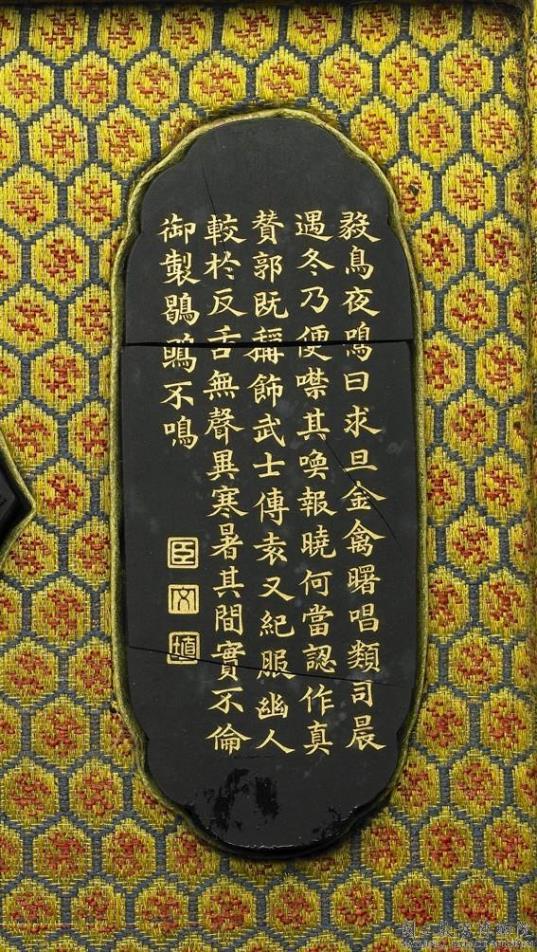 毅鳥夜鳴曰求旦金禽曙唱類司晨
遇冬乃便噤其喚報曉何當認作真
贊郭既稱飾武士傳袁又紀服幽人
較於反舌無聲異寒暑其間實不倫
御製鶡鴠不鳴
臣
文
埴
國立故宮博物院